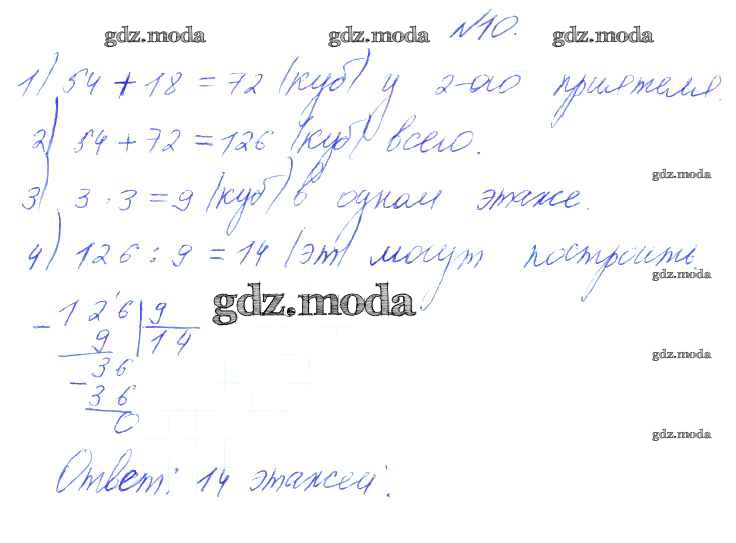 gdz.moda gdz.moda №10. gdz.moda
1) 54 + 18 = 72 (куб) у 2-ого приятеля.
2) 54 + 72 = 126 (куб) всего.
gdz.moda
3) 3 · 3 = 9 (куб) в одном этаже.
4) 126 : 9 = 14 (эт) могут построить.
gdz.moda
gdz.moda
- 126 | 9
9 | 14
- 36
gdz.moda
36
0
gdz.moda
Ответ: 14 этажей.